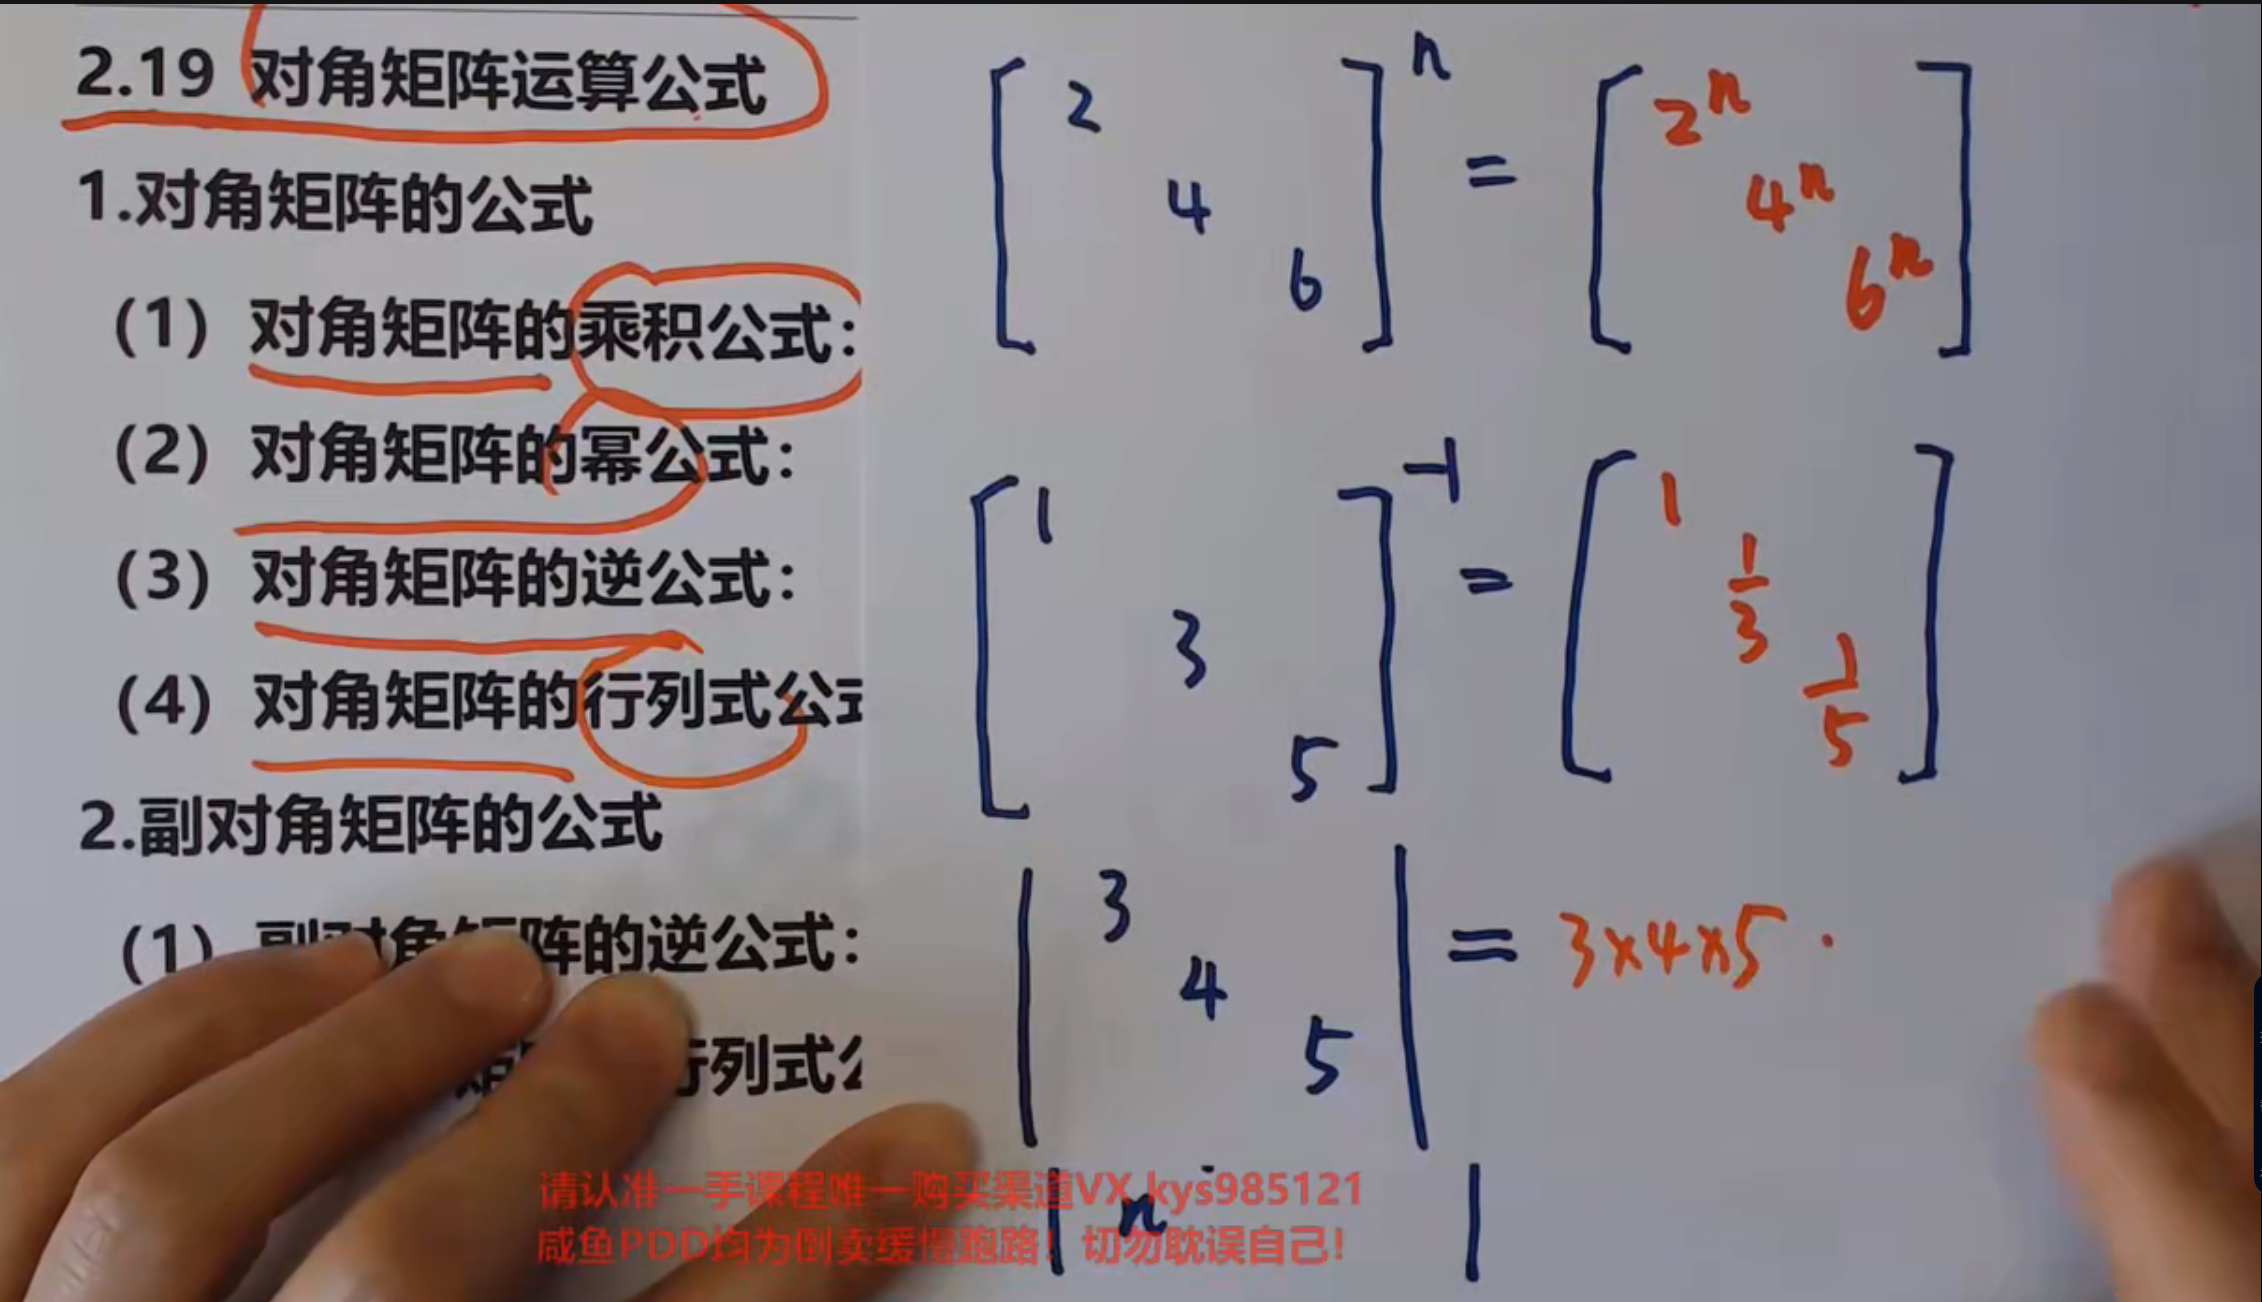 2.19 对角矩阵运算公式
1.对角矩阵的公式
(1) 对角矩阵的乘积公式:
(2) 对角矩阵的幂公式:
(3) 对角矩阵的逆公式:
(4) 对角矩阵的行列式公
2.副对角矩阵的公式
(1) 副对角矩阵的逆公式:
行列式
[2
4
6]^n = [2^n
4^n
6^n]
[1
3
5]^-1 = [1
1/3
1/5]
|3
4
5| = 3×4×5
|n |
请认准一手课程唯一购买渠道VX kys985121
咸鱼PDD均为倒卖缓慢跑路! 切勿耽误自己!